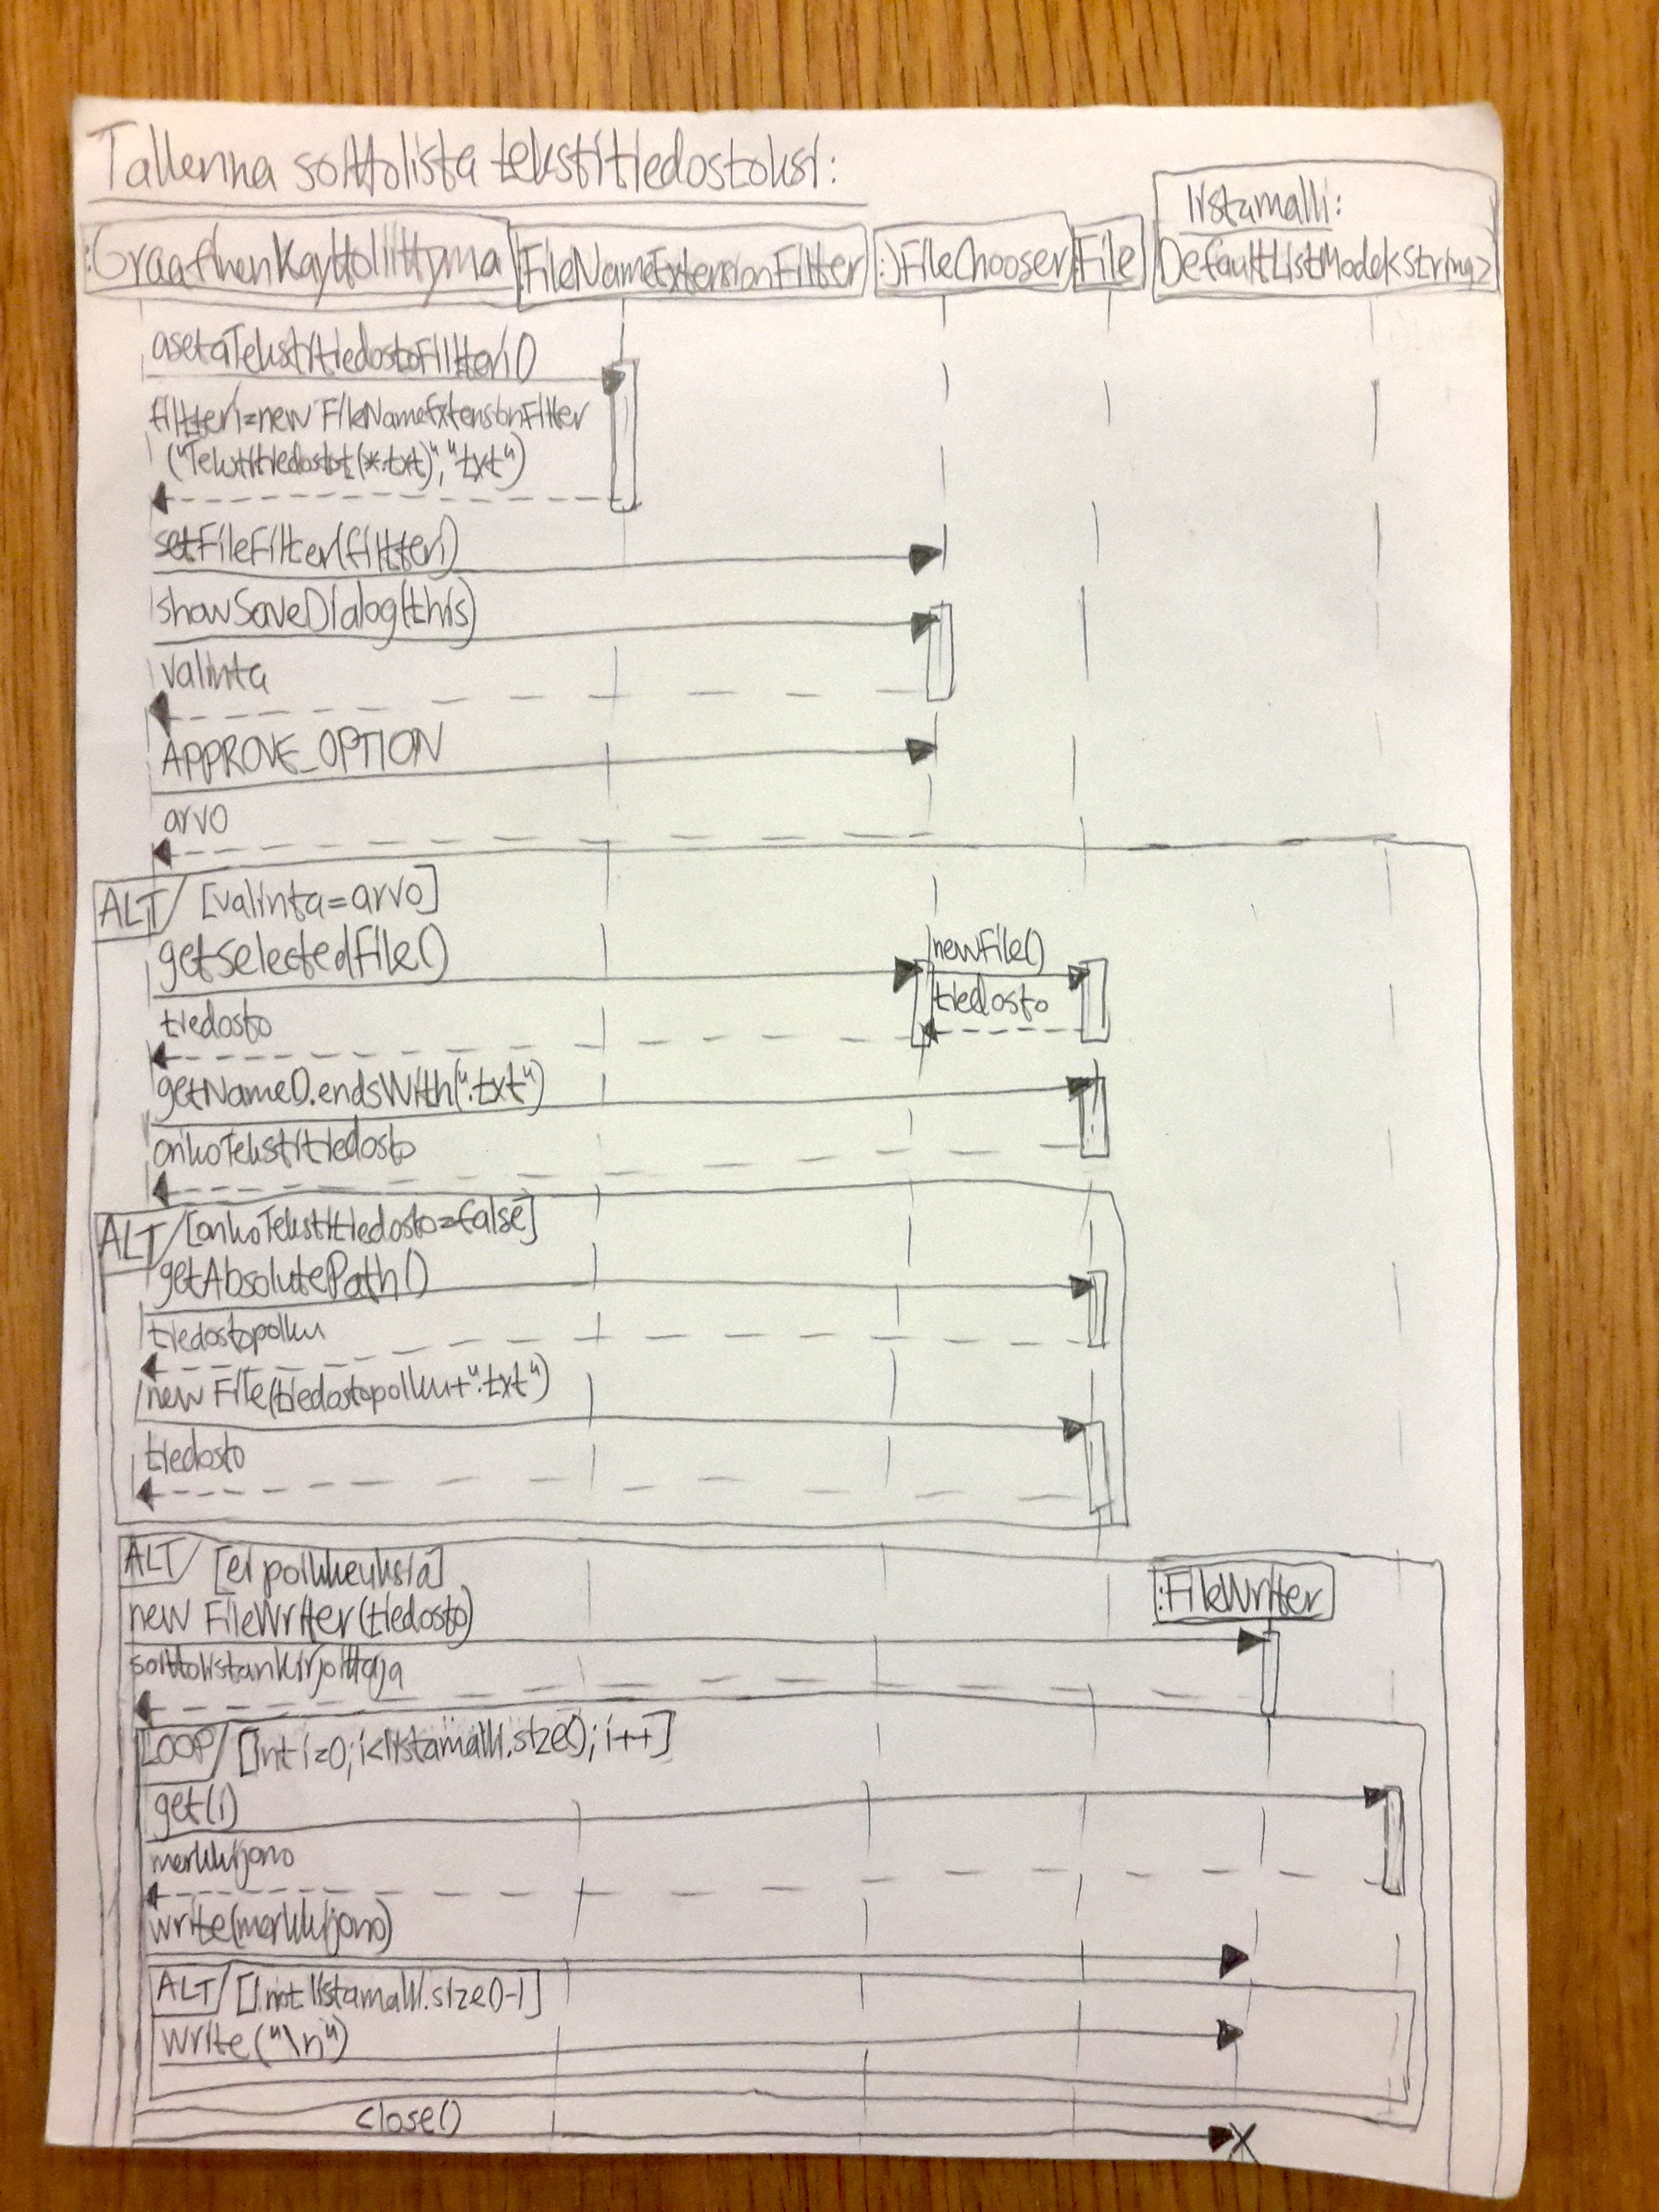 Tallenna soittolista tekstitiedostoksi:
:GraafinenKayttoliittyma
:FileNameExtensionFilter
:JFileChooser
:File
listamalli:
DefaultListModel<String>
asetaTekstitiedostoFiltteri()
filtteri=new FileNameExtensionFilter
("Tekstitiedostot(*.txt)","txt")
setFileFilter(filtteri)
showSaveDialog(this)
valinta
APPROVE_OPTION
arvo
ALT [valinta=arvo]
getSelectedFile()
newFile()
tiedosto
tiedosto
getName().endsWith(".txt")
onkoTekstitiedosto
ALT [onkoTekstitiedosto=false]
getAbsolutePath()
tiedostopolku
new File(tiedostopolku+".txt")
tiedosto
ALT [ei poikkeuksia]
:FileWriter
new FileWriter(tiedosto)
soittolistanKirjoittaja
LOOP [int i=0; i<listamalli.size(); i++]
get(i)
merkkijono
write(merkkijono)
ALT listamalli.size()-1]
write("\n")
close()
X